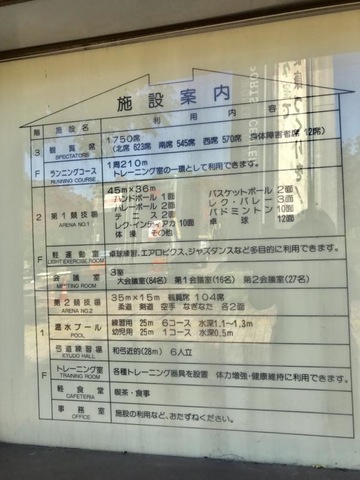 施設案内
階 施設名 利用内容
3F 観覧席 SPECTATORS 1,750席
(北席 623席 南席 545席 西席 570席 身体障害者席 12席)
ランニングコース RUNNING COURSE 1周210m
トレーニング室の一環として利用できます。
2F 第1競技場 ARENA NO.1 45m×36m
ハンドボール 1面 バスケットボール 2面
バレーボール 2面 レク・バレー 3面
テニス 2面 バドミントン 10面
レク・インディアカ 10面 卓球 12面
体操 その他
軽運動室 LIGHT EXERCISE ROOM 卓球練習、エアロビクス、ジャズダンスなど多目的に利用できます。
1F 会議室 MEETING ROOM 3室
大会議室(84名) 第1会議室(16名) 第2会議室(27名)
第2競技場 ARENA NO.2 35m×15m 観覧席 104席
柔道 剣道 空手 なぎなた 各2面
温水プール POOL 練習用 25m 6コース 水深1.1~1.3m
幼児用 25m 1コース 水深0.5m
弓道練習場 KYUDO HALL 和弓近的(28m) 6人立
トレーニング室 TRAINING ROOM 各種トレーニング器具を設置 体力増強・健康維持に利用できます。
軽食堂 CAFETERIA 喫茶・食事
事務室 OFFICE 施設の利用など、おたずねください。